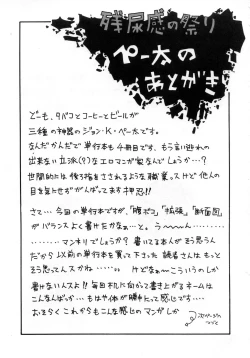 残尿感の祭り
ペー太の
あとがき
どーも、タバコとコーヒーとビールが
三種の神器のジョン・K・ペー太です。
なんだかんだで単行本も4冊目です、もう言い逃れの
出来ない立派(?)なエロマンガ家なんでしょうか…?
世間的には後ろ指をさされるような職業っスけど他人の
目を気にせずがんばってます押忍!!
さて…今回の単行本ですが、「腹ボコ」「拡張」「断面図」
がバランスよく書けたかなぁ…と。うーーん………
………マンネリでしょうか? 書いてる本人がそう思うん
だから以前の単行本を買って下さった読者さんはもっと
そう思ってんスかね……。 けどなぁ～こういうのしか
書けない人スよ!! 毎回机に向かって書き上がるネームは
こんなんばっか…もはや体が勝手にって感じです…。
おそらくこれからもこんな感じのマンガしか
つづく